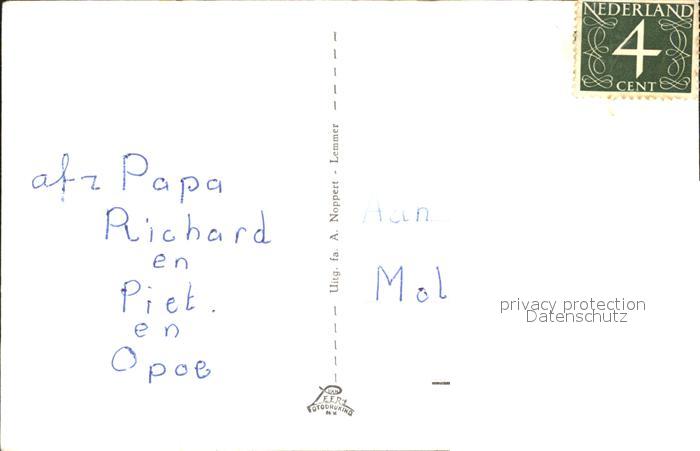 NEDERLAND
4
CENT
afz Papa
Richard
en
Piet.
en
Opoe
Uitg. fa. A. Noppert - Lemmer
Aan
Mol
privacy protection
Datenschutz
VAN
LEER'S
FOTODRUKIND
N.V.